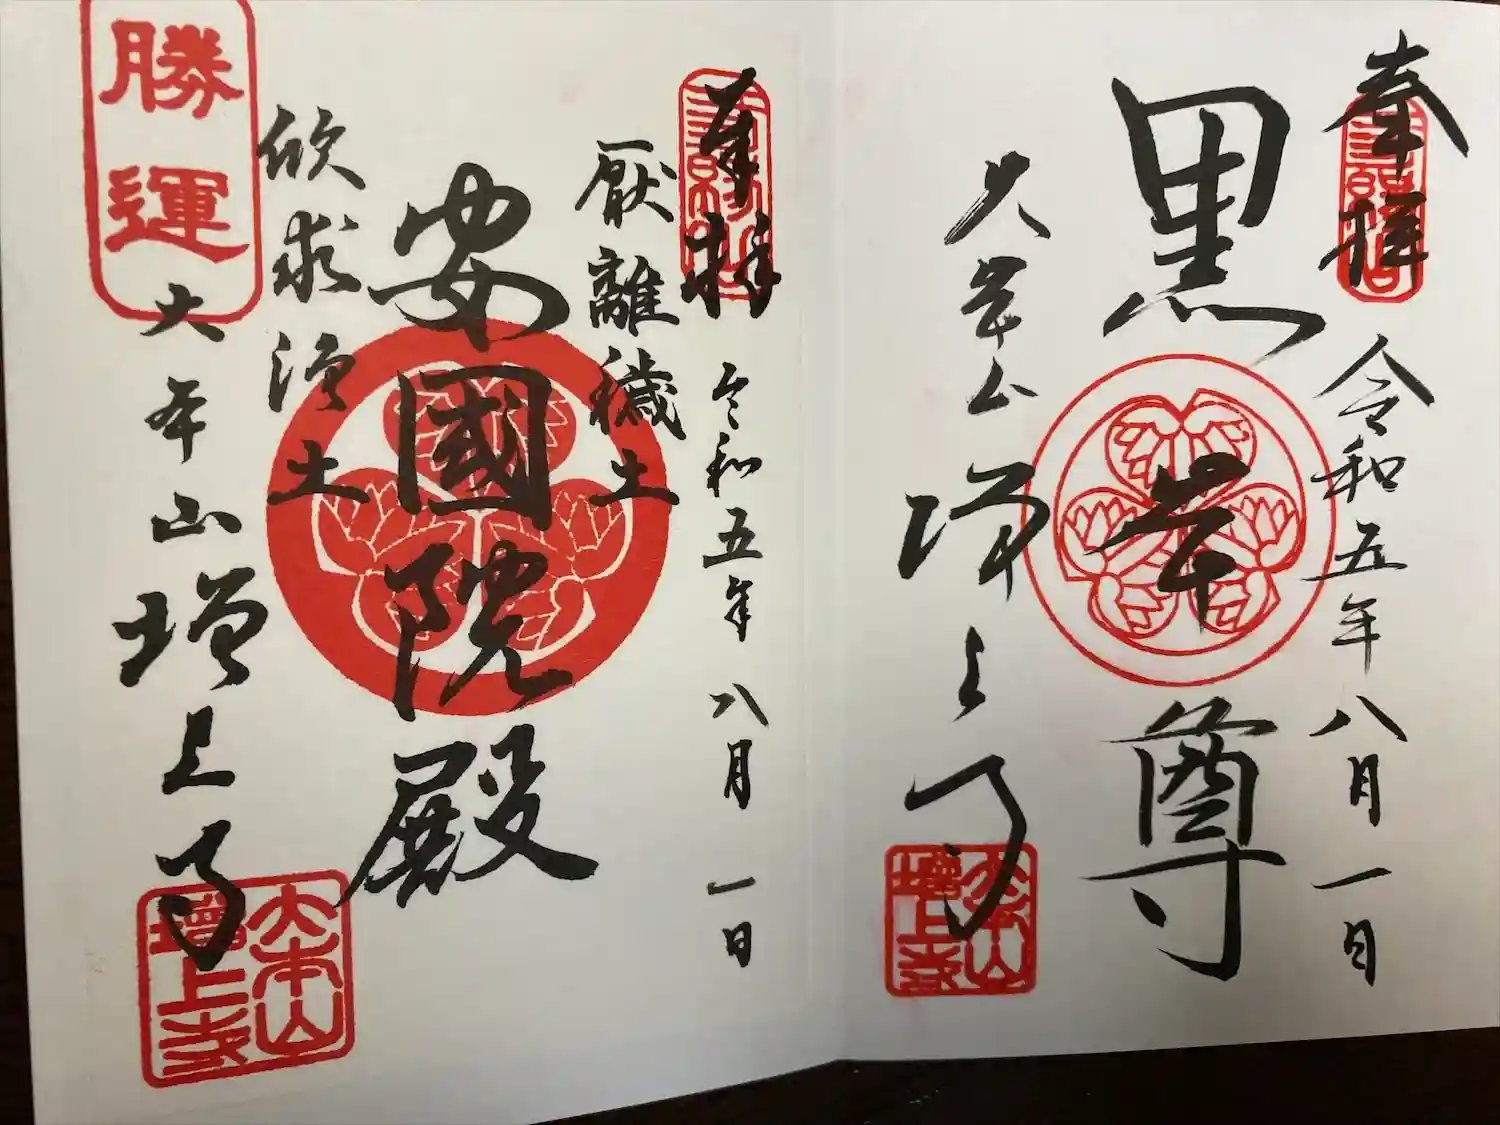 奉拝
令和五年八月一日
黒本尊
大本山増上寺
大本山
増上寺
奉拝
令和五年八月一日
厭離穢土
安國院殿
欣求浄土
勝運
大本山増上寺
大本山
増上寺